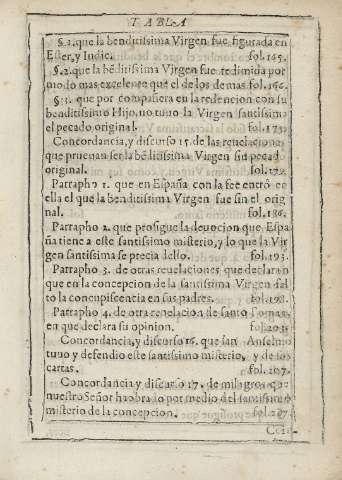 TABLA
§.1. que la benditissima Virgen fue figurada en
Ester, y Iudic. fol.165.
§.2. que la bẽditissima Virgen fue redimida por
modo mas excelente que el de los demas fol.166.
§.3. que por compañera en la redencion con su
benditissimo Hijo, no tuuo la Virgen santissima
el pecado original. fol.173.
Concordancia, y discurso 15. de las reuelaciones
que prueuan ser la bẽditissima Virgen sin pecad
original. fol.179.
Parrapho 1. que en España con la fee entrò en
ella el que la benditissima Virgen fue sin el orig
nal. fol.186.
Parrapho 2. que prosigue la deuocion que Espa
ña tiene a este santissimo misterio, y lo que la Vir
gen santissima se precia dello. fol.193.
Parrapho 3. de otras reuelaciones que declaran
que en la concepcion de la santissima Virgen fal
tò la concupiscencia en sus padres. fol.198.
Parrapho 4. de otra reuelacion de santo Tomas,
en que declara su opinion. fol.203.
Concordancia, y discurso 16. que san Anselmo
tuuo y defendio este santissimo misterio, y de los
cartas. fol.207.
Concordancia y discurso 17. de milagros que
nuestro Señor ha obrado por medio del santissimo
misterio de la concepcion. fol.217.